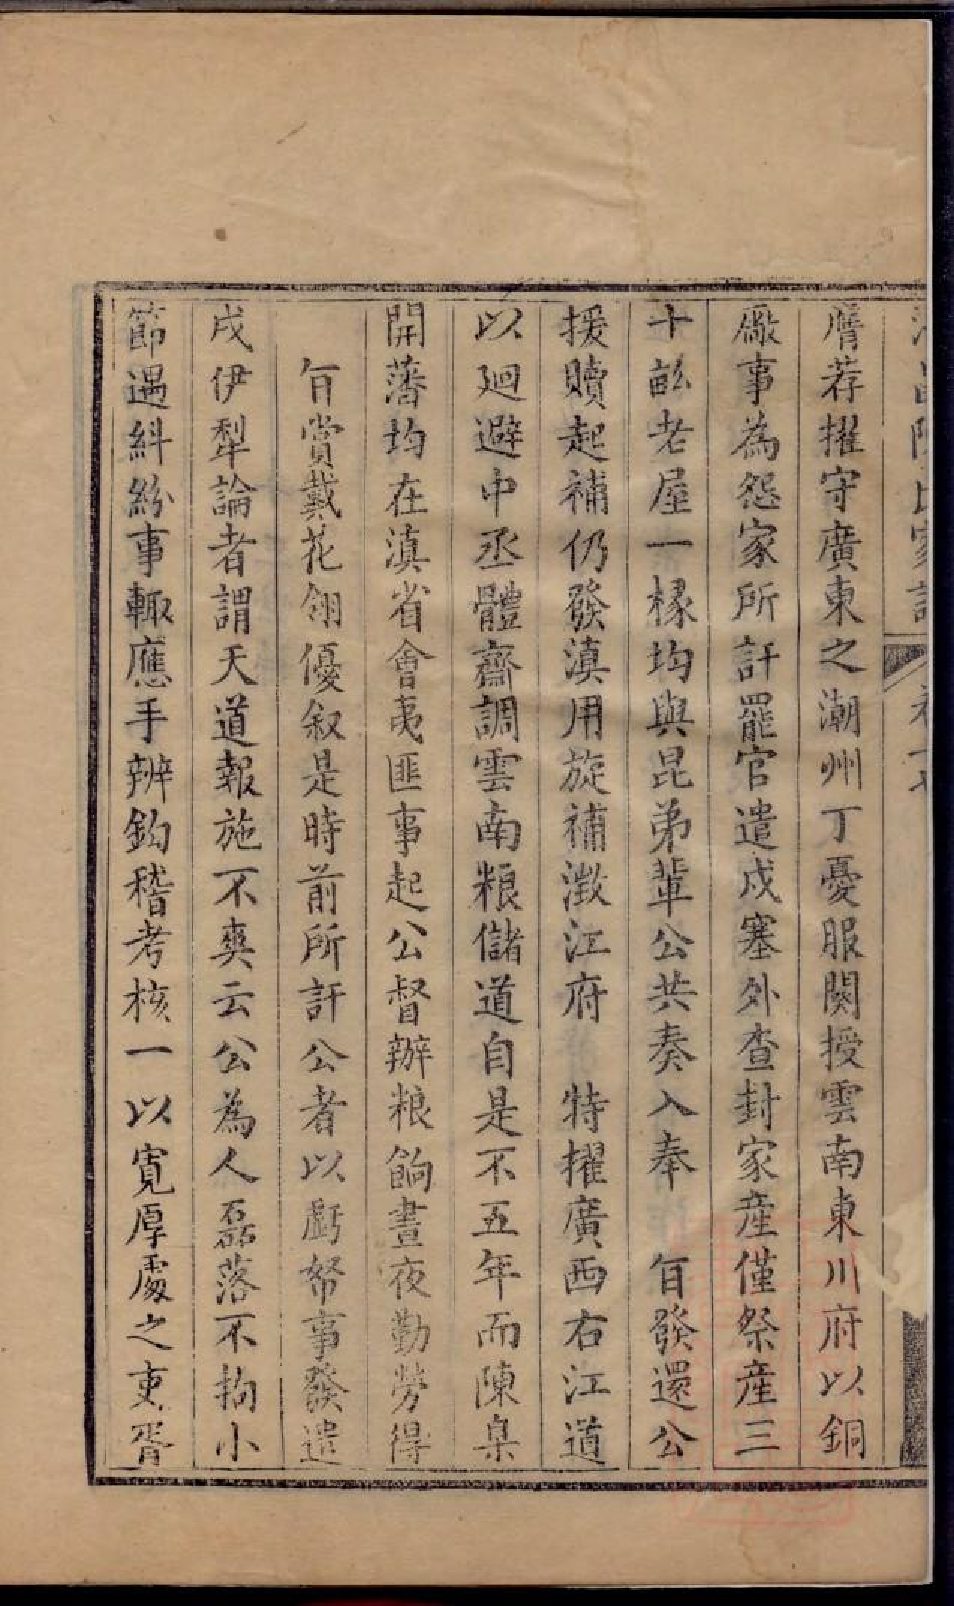 膺荐擢守廣東之潮州丁憂服闋授雲南東川府以銅
廠事為怨家所訐罷官遣戍塞外查封家產僅祭產三
十畝老屋一椽均與昆弟輩公共奏入奉　旨發還公
援贖起補仍發滇用旋補澂江府　特擢廣西右江道
以廻避中丞體齋調雲南粮儲道自是不五年而陳臬
開藩均在滇省會夷匪事起公督辦粮餉晝夜勤勞得
旨賞戴花翎優叙是時前所訐公者以虧帑事發遣
戍伊犁論者謂天道報施不爽云公為人磊落不拘小
節遇紏紛事輙應手辨鈎稽考核一以寛厚處之吏胥